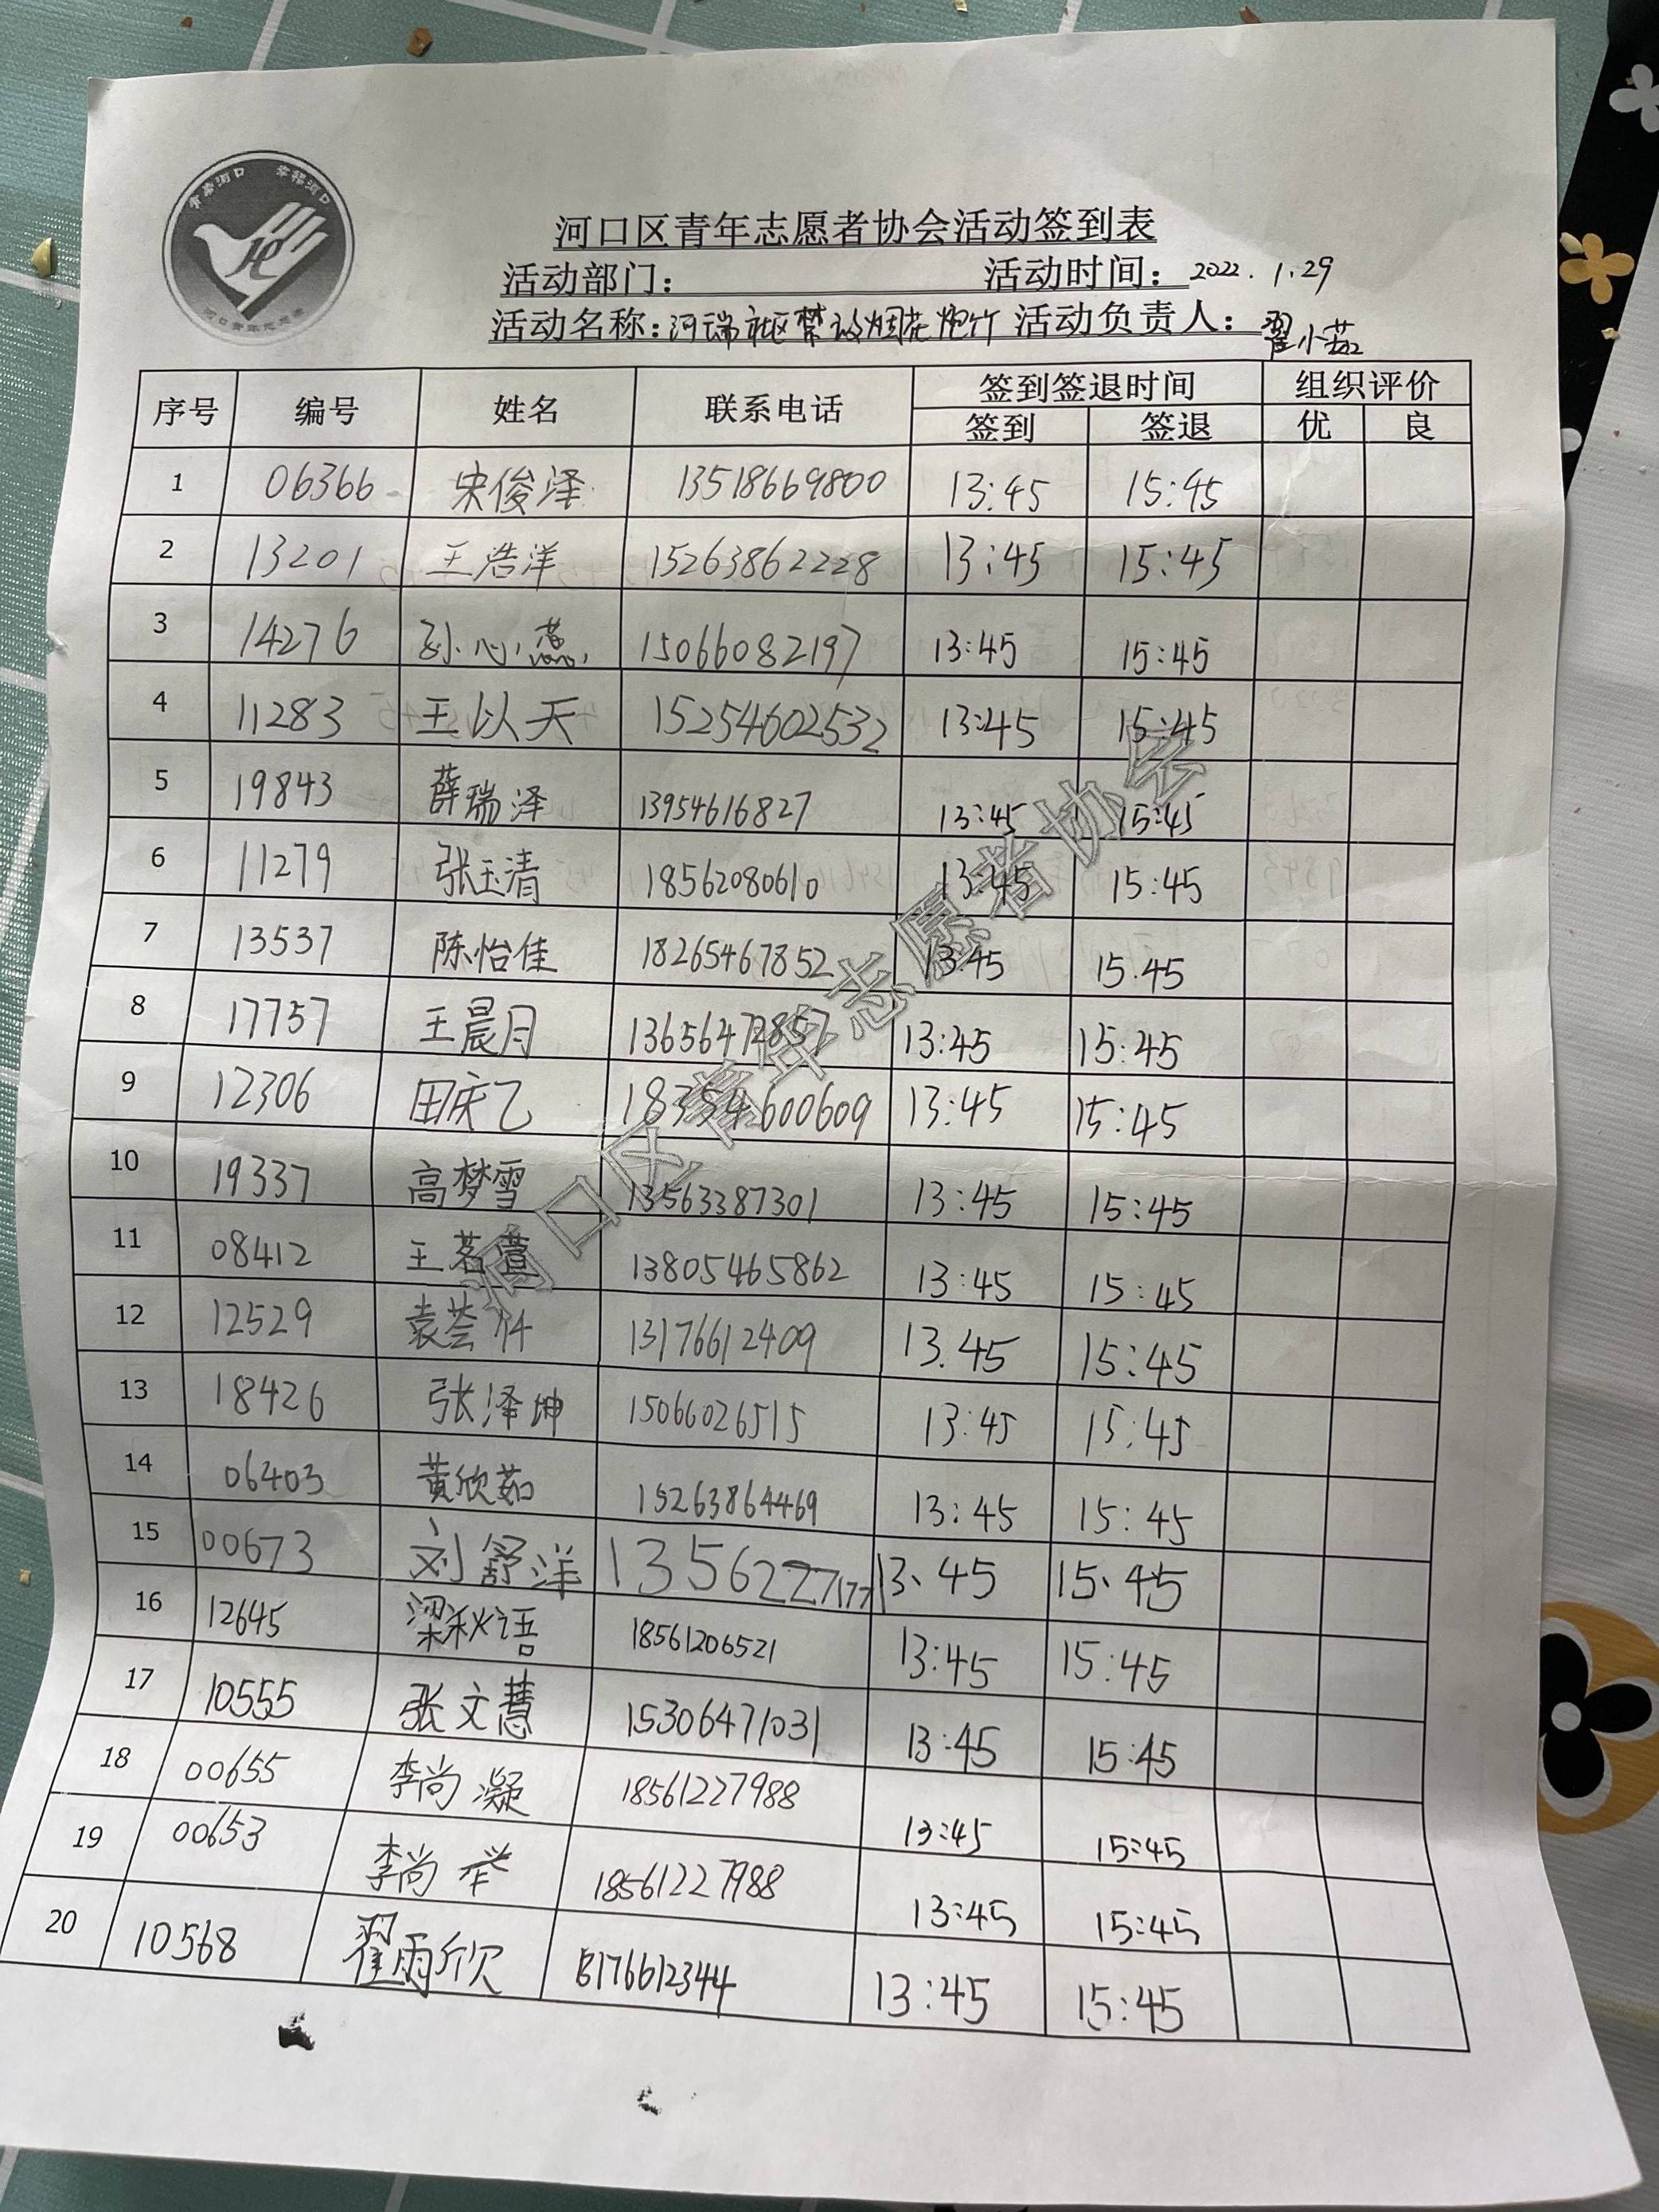 青春河口 幸福河口
河口青年志愿者
河口区青年志愿者协会活动签到表
活动部门： 活动时间：2022.1.29
活动名称：河瑞社区禁放烟花炮竹 活动负责人：翟小茹
序号 编号 姓名 联系电话 签到签退时间 组织评价
签到 签退 优 良
1 06366 宋俊泽 13518669800 13:45 15:45
2 13201 王浩洋 15263862228 13:45 15:45
3 14276 孙心蕊 15066082197 13:45 15:45
4 11283 王以天 15254602532 13:45 15:45
5 19843 薛瑞泽 13954616827 13:45 15:45
6 11279 张玉清 18562080610 13:45 15:45
7 13537 陈怡佳 18265467852 13:45 15.45
8 17757 王晨月 13656472857 13:45 15:45
9 12306 田庆乙 18354600609 13:45 15:45
10 19337 高梦雪 13563387301 13:45 15:45
11 08412 王茗萱 13805465862 13:45 15:45
12 12529 袁荟竹 13176612409 13.45 15:45
13 18426 张泽坤 15066026515 13:45 15:45
14 06403 黄欣茹 15263864469 13:45 15:45
15 00673 刘舒洋 13562277177 13、45 15、45
16 12645 梁秋语 18561206521 13:45 15:45
17 10555 张文慧 15306471031 13:45 15:45
18 00655 李尚凝 18561227988 13:45 15:45
19 00653 李尚 18561227988 13:45 15:45
20 10568 翟雨欣 13176612344 13:45 15:45
河口区青年志愿者协会